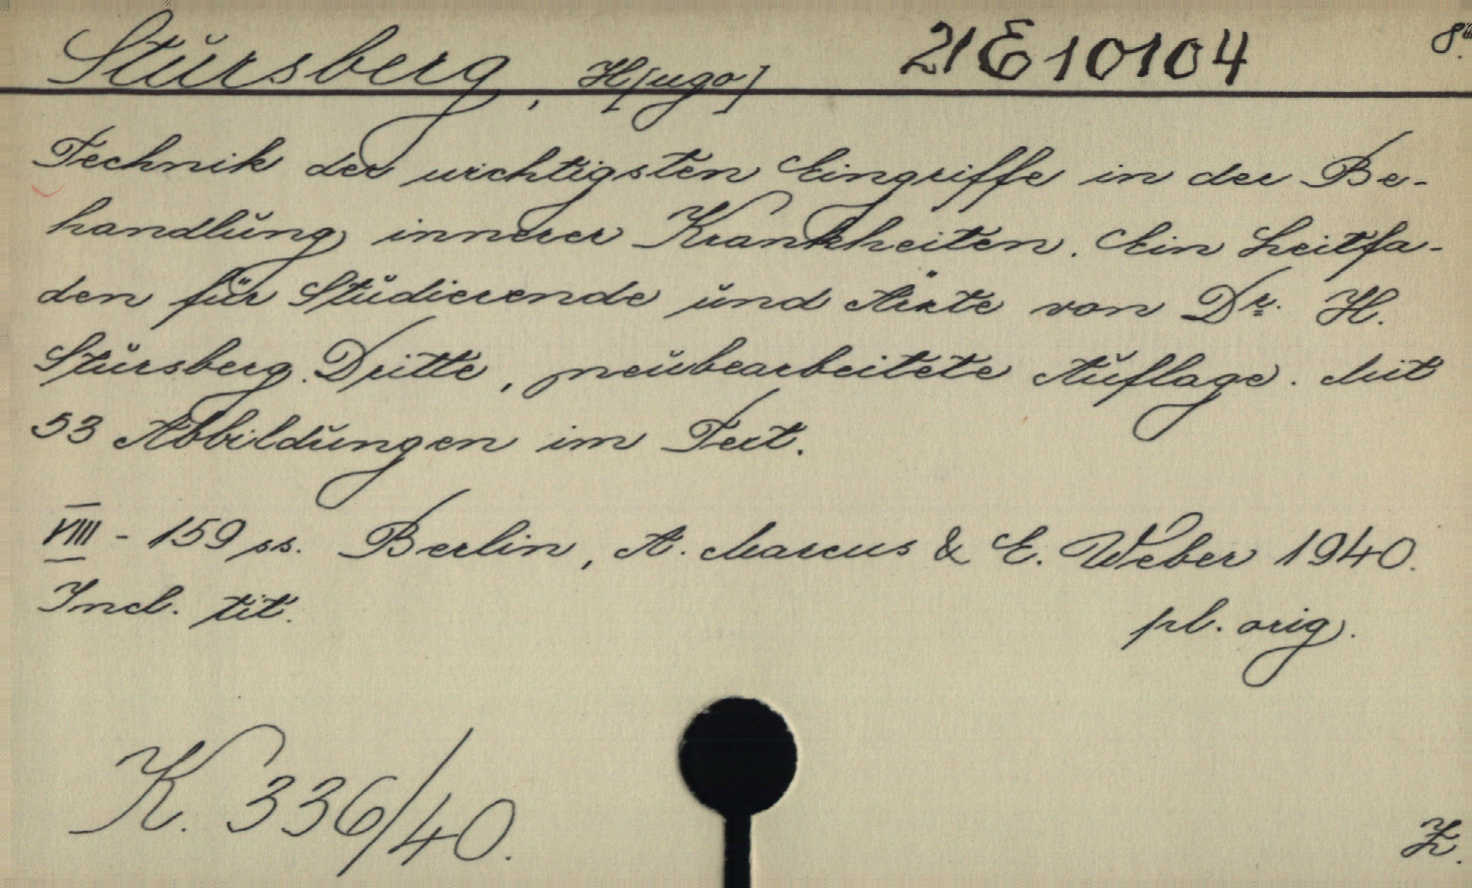 Stursberg, H[ugo] 21 E 10104 8°
Technik der wichtigsten Eingriffe in der Be-
handlung innerer Krankheiten. Ein Leitfa-
den für Studierende und Ärzte von Dr. H.
Stursberg. Dritte, neubearbeitete Auflage. Mit
53 Abbildungen im Text.
VIII - 159 ss. Berlin, A. Marcus & E. Weber 1940.
Incl. tit.
pl. orig.
K. 336/40.